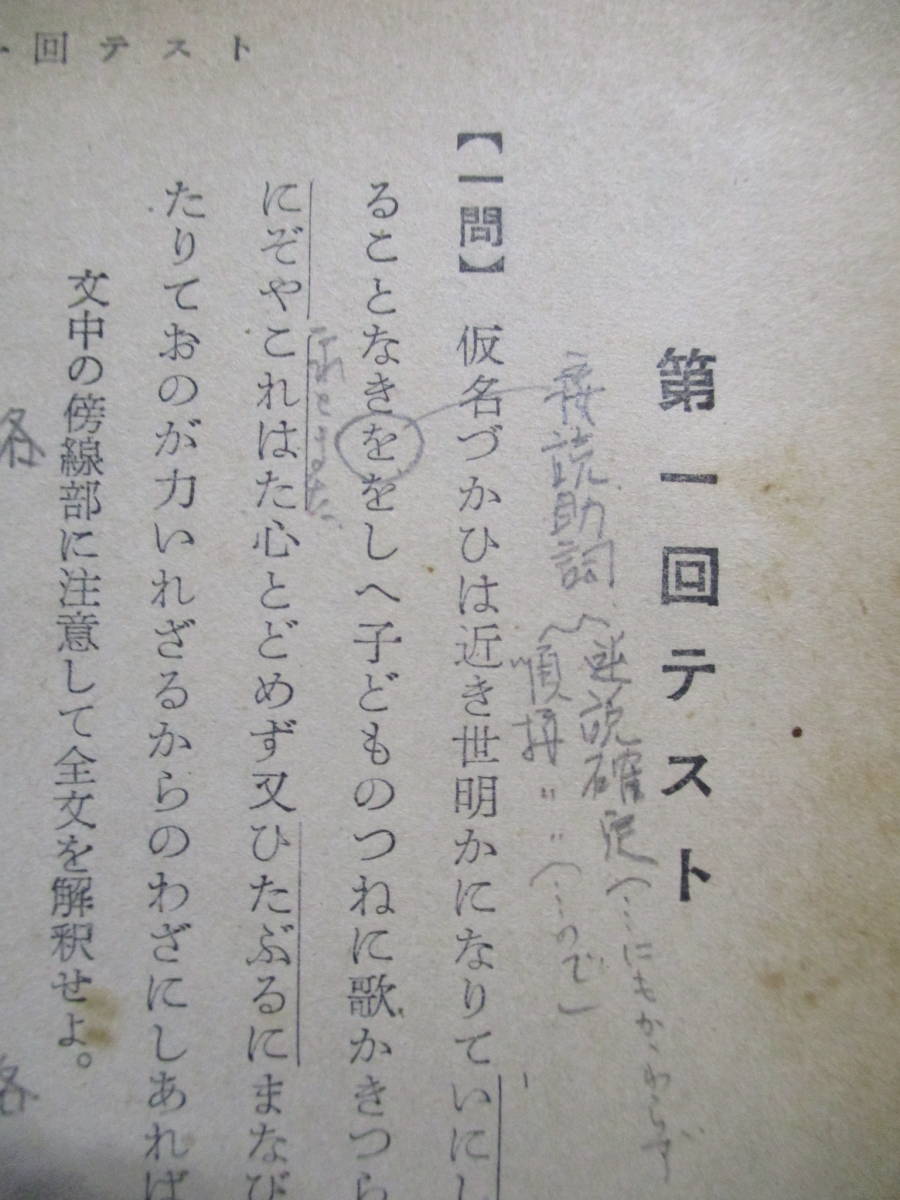 回テスト
第一回テスト
接続助詞
逆説確定(…にもかかわらず
順接〃〃(…ので)
【一問】 仮名づかひは近き世明かになりていにし
ることなきををしへ子どものつねに歌かきつら
にぞやこれはた心とどめず又ひたぶるにまなび
これもまた
たりておのが力いれざるからのわざにしあれば
文中の傍線部に注意して全文を解釈せよ。